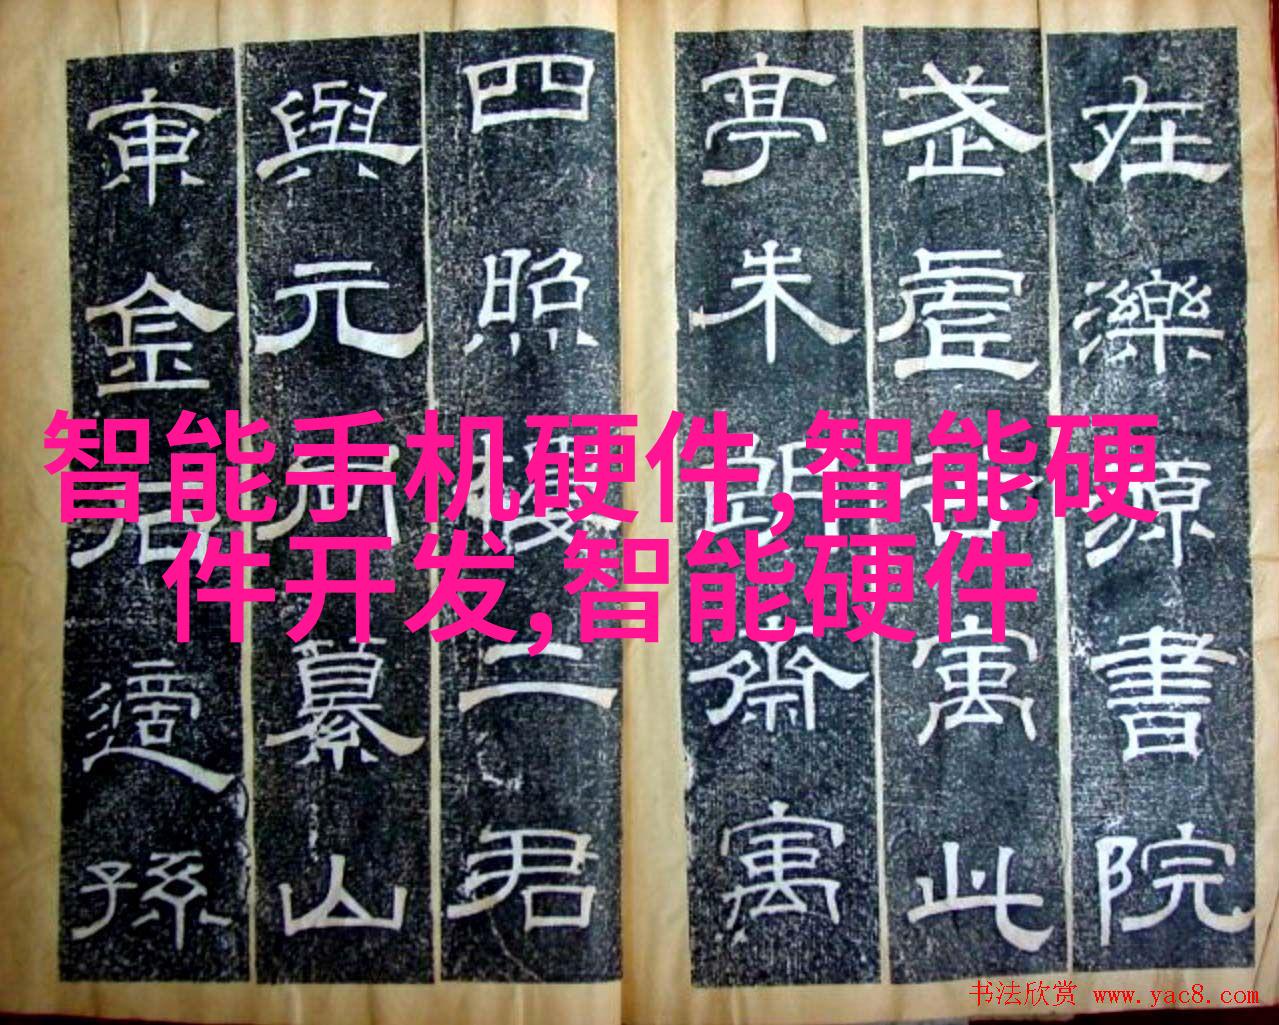 在濼源書院
武虛寓此
亭朱朗齋寓
四照樓二君
與元同纂山
東金石適孫
智能手机硬件,智能硬
件开发,智能硬件
书法欣赏 www.yac8.com